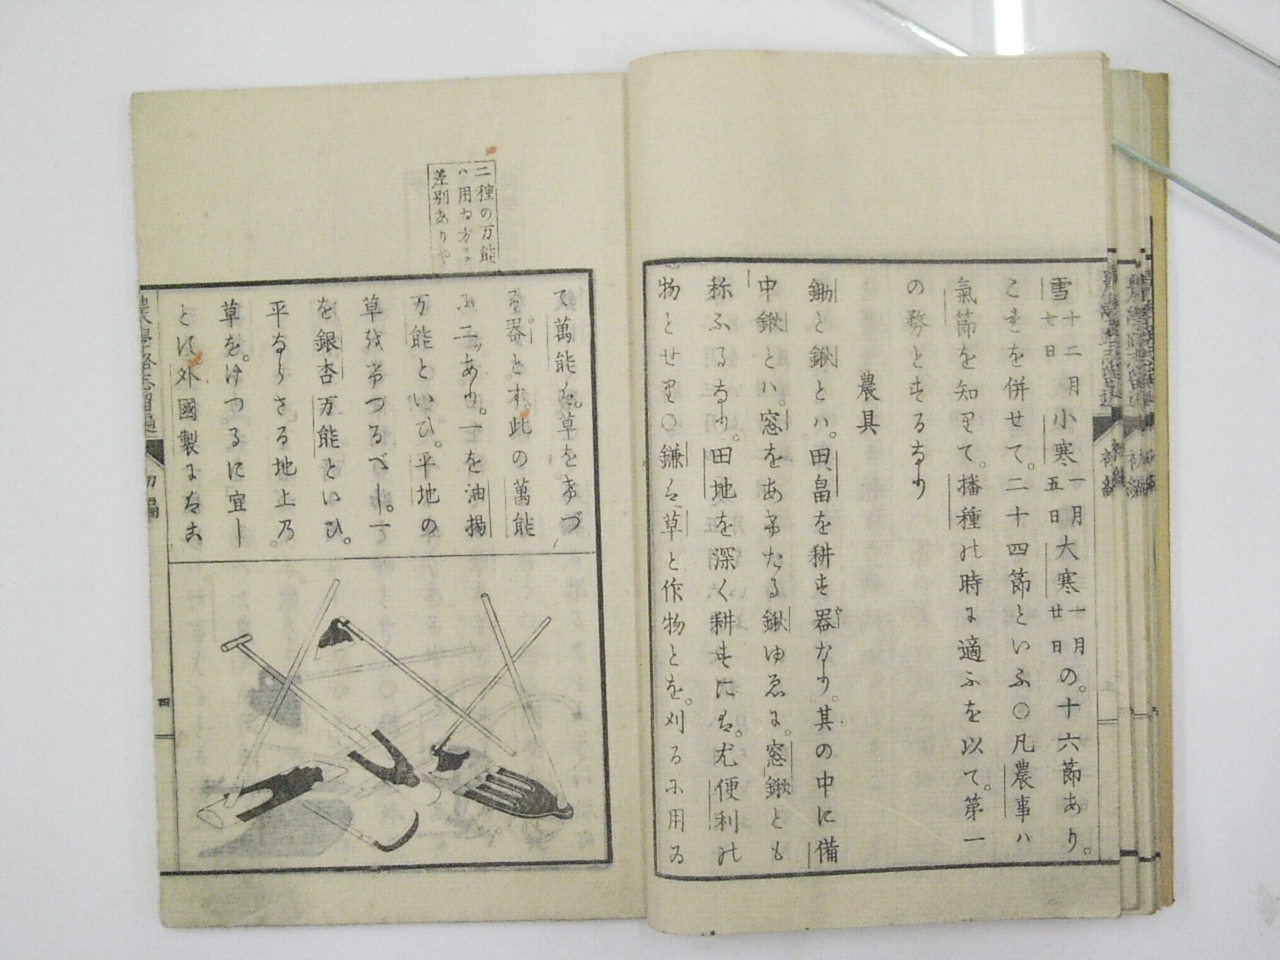 雪十二月七日小寒一月五日大寒一月廿日の。十六節あり。
これを併せて。二十四節といふ〇凡農事ハ
氣節を知りて。播種の時に適ふを以て。第一
の務とするなり
農具
鋤と鍬とハ。田畠を耕す器なり。其の中に備
中鍬とハ。窓をあけたる鍬ゆゑに。窓鍬とも
称ふるなり。田地を深く耕すには。尤便利の
物とせり〇鎌は草と作物とを。刈るに用ゐ
二種の万能
ハ用ゐ方に
差別ありや
て萬能は。草をけづ
る器とす。此の萬能
に二ツあり。一を油揚
万能といひ。平地の
草をけづるべし。一
を銀杏万能といひ。
平ならざる地上の
草を。けづるに宜し
とは外國製に
初編
四